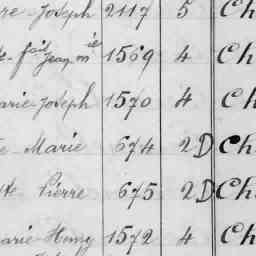 re Joseph 2117 5 Ch
Jean m ie 1569 4 Ch
arie Joseph 1570 4 Ch
Marie 674 2D Ch
te Pierre 675 2D Ch
arie Henry 1572 4 Ch